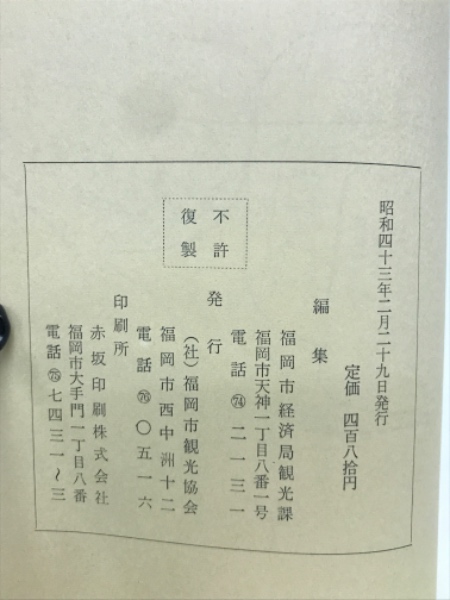 昭和四十三年二月二十九日発行
定価 四百八拾円
編集
福岡市経済局観光課
福岡市天神一丁目八番一号
電話 ㉔ 二一三一
発行
(社)福岡市観光協会
福岡市西中洲十二
電話 ○五一六
印刷所
赤坂印刷株式会社
福岡市大手門一丁目八番
電話 七四三一〜三
不許
復製